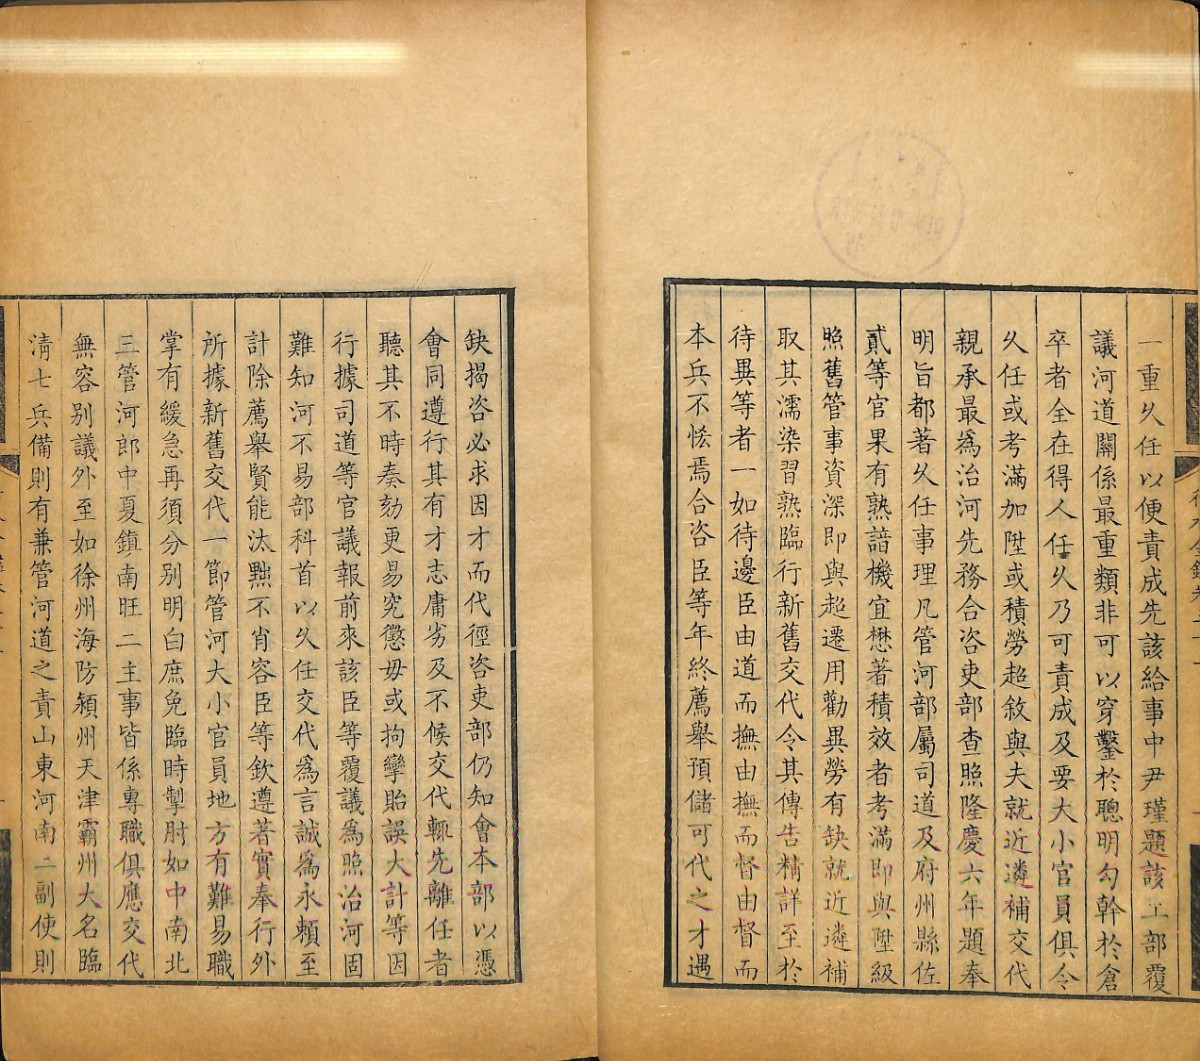 一重久任以便責成先該給事中尹瑾題該工部覆
議河道關係最重類非可以穿鑿於聰明勾幹於倉
卒者全在得人任久乃可責成及要大小官員俱令
久任或考滿加陞或積勞超敘與夫就近遴補交代
親承最爲治河先務合咨吏部查照隆慶六年題奉
明旨都著久任事理凡管河部屬司道及府州縣佐
貳等官果有熟諳機宜懋著積效者考滿即與陞級
照舊管事資深即與超遷用勸異勞有缺就近遴補
取其濡染習熟臨行新舊交代令其傳告精詳至於
待異等者一如待邊臣由道而撫由撫而督由督而
本兵不恡焉合咨臣等年終薦舉預儲可代之才遇
缺揭咨必求因才而代徑咨吏部仍知會本部以憑
會同遵行其有才志庸劣及不候交代輒先離任者
聽其不時奏劾更易究懲毋或拘攣貽誤大計等因
行據司道等官議報前來該臣等覆議爲照治河固
難知河不易部科首以久任交代爲言誠爲永賴至
計除薦舉賢能汰黜不肖容臣等欽遵著實奉行外
所據新舊交代一節管河大小官員地方有難易職
掌有緩急再須分別明白庶免臨時掣肘如中南北
三管河郎中夏鎮南旺二主事皆係專職俱應交代
無容别議外至如徐州海防潁州天津霸州大名臨
清七兵備則有兼管河道之責山東河南二副使則